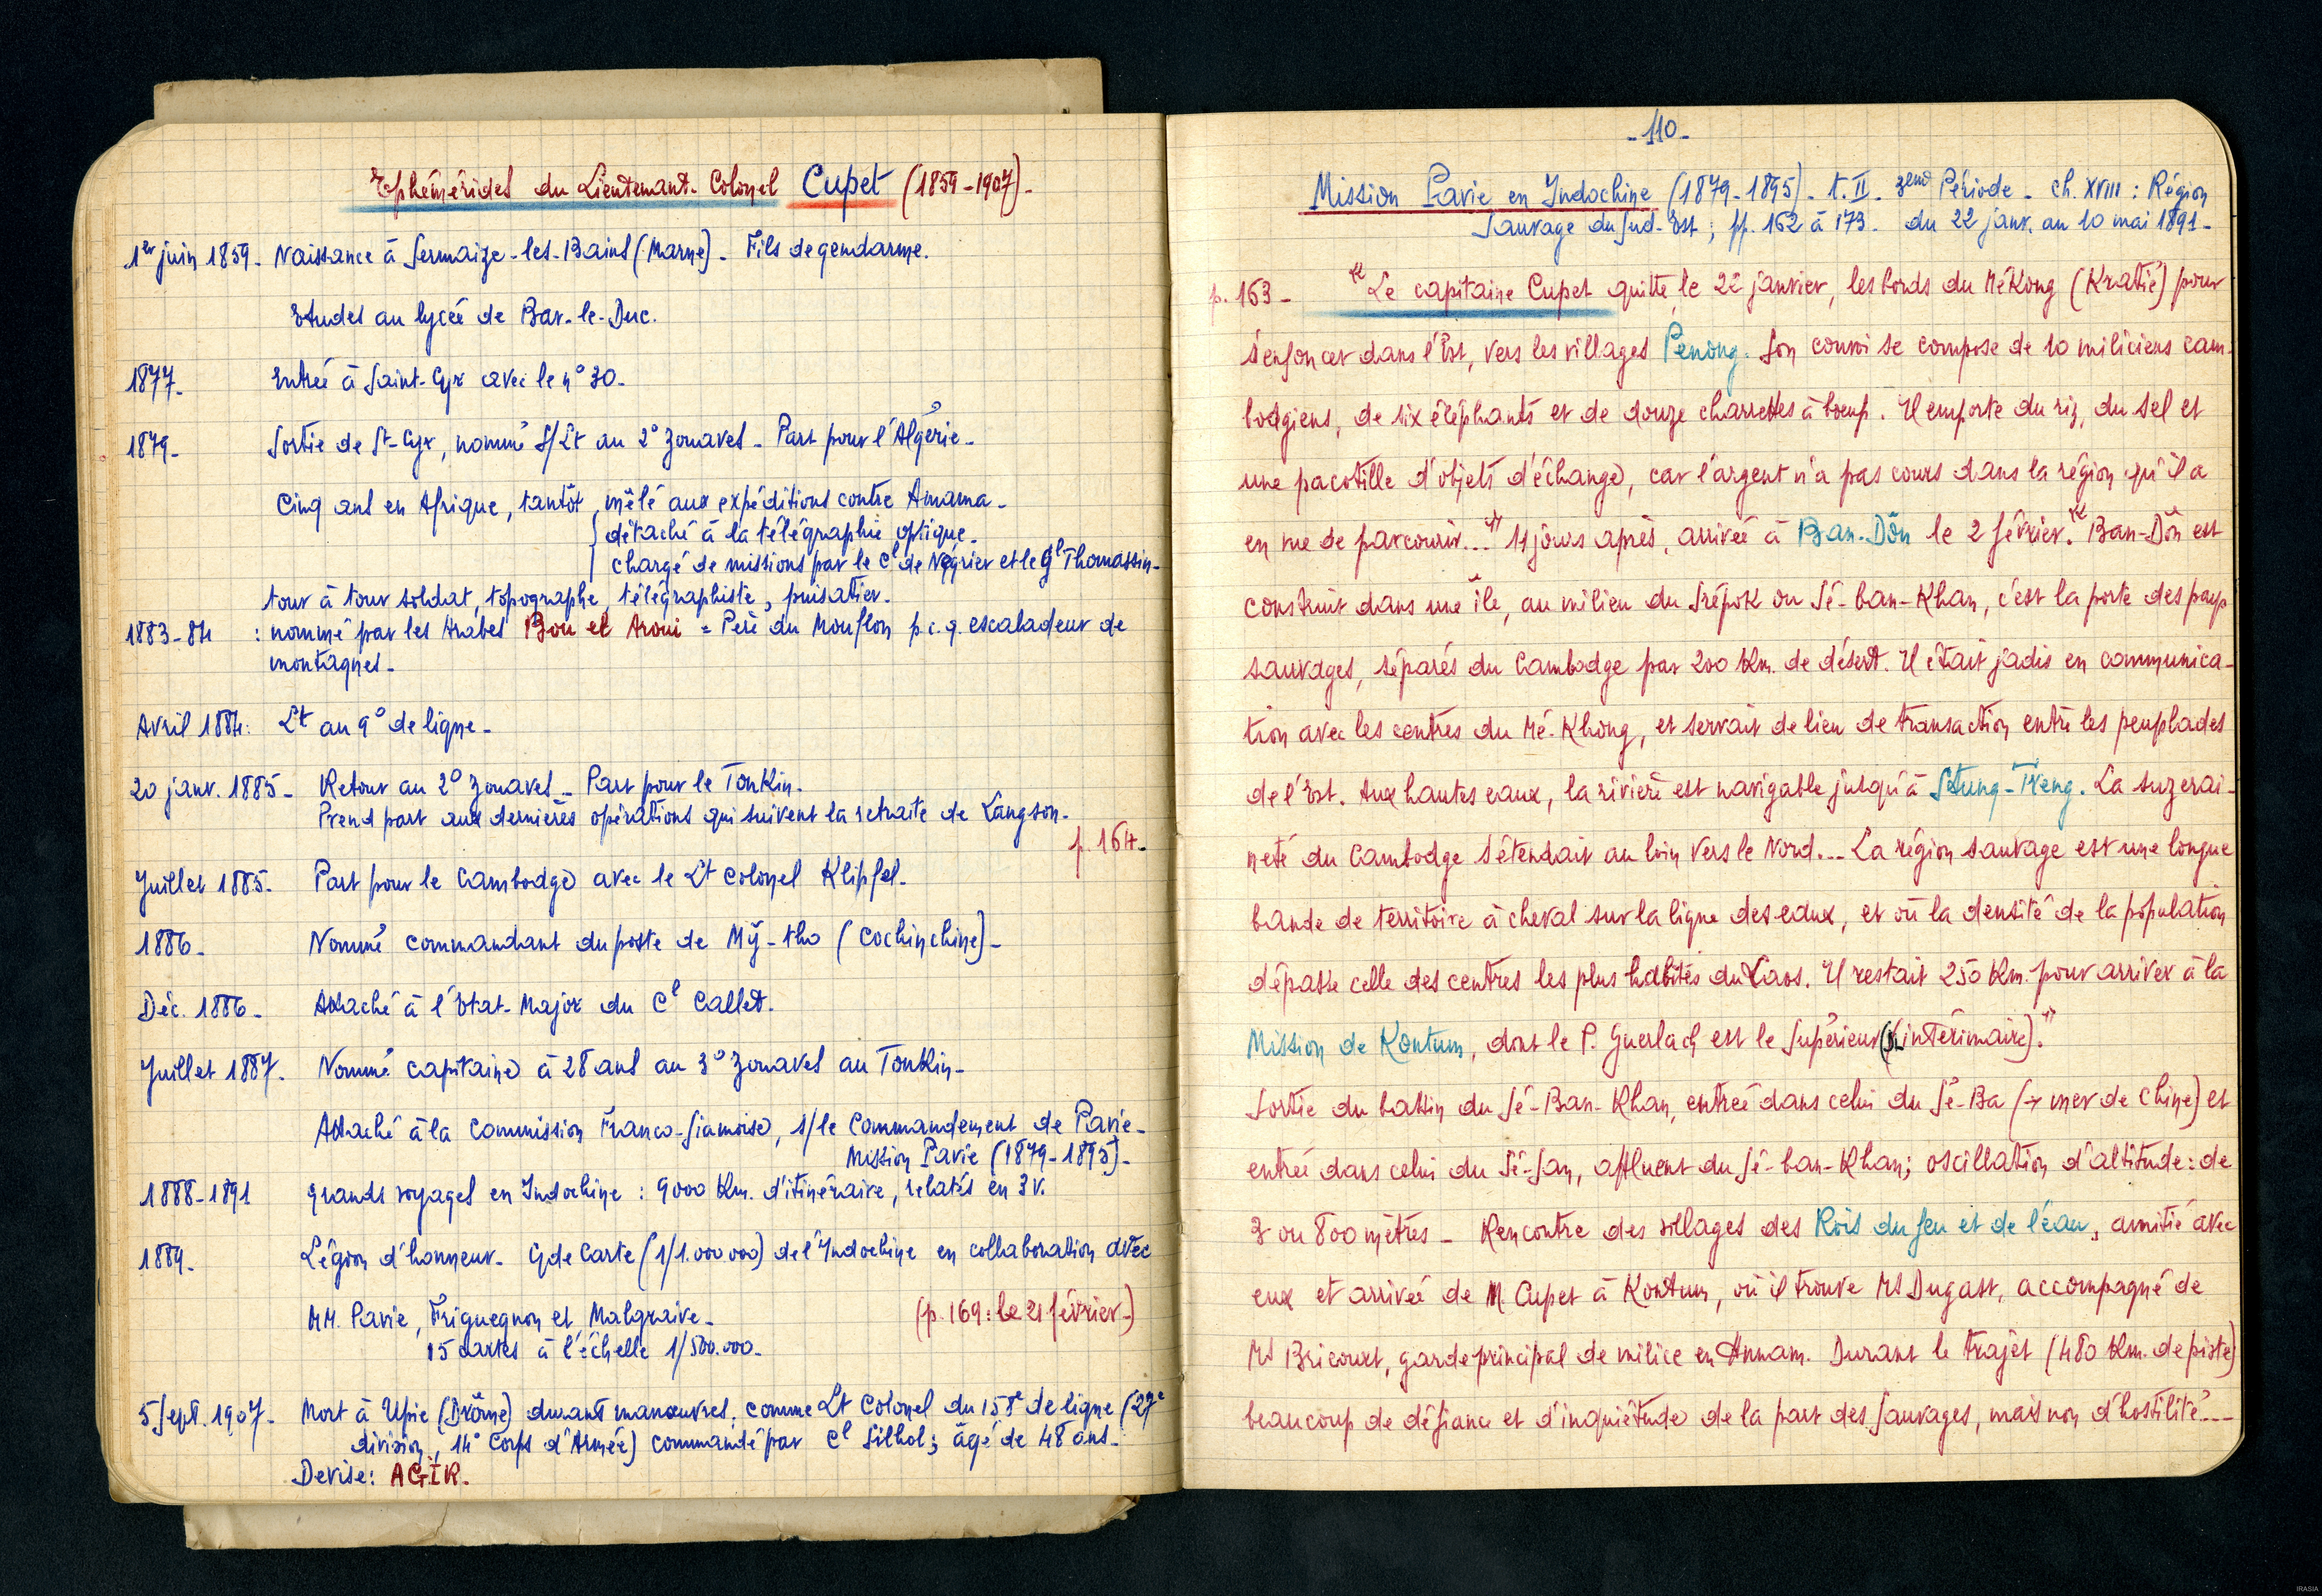 Ephémérides du Lieutenant-Colonel Cupet (1859-1907)-
1er juin 1859- Naissance à Sermaize-les-Bains (Marne)- Fils de gendarme.
Etudes au lycée de Bar-le-Duc.
1877- Entrée à Saint-Cyr avec le n° 30-
1879- Sortie de St-Cyr, nommé S/Lt au 2° Zouaves- Part pour l'Algérie-
Cinq ans en Afrique, tantôt mêlé aux expéditions contre Amama-
détaché à la télégraphie optique-
chargé de missions par le Cl de Négrier et le Gl Thomassin-
tour à tour soldat, topographe, télégraphiste, puisatier-
1883-84 : nommé par les Arabes Bou el Aroui = Père du Mouflon p.c.q. escaladeur de
montagnes-
Avril 1884: Lt au 9° de ligne-
20 janv. 1885- Retour au 2° Zouaves- Part pour le Tonkin.
Prend part aux dernières opérations qui suivent la retraite de Langson-
p. 164-
Juillet 1885- Part pour le Cambodge avec le Lt Colonel Klipfel-
1886- Nommé commandant du poste de Mỹ-tho (Cochinchine)-
Déc. 1886- Attaché à l'Etat-Major du Cl Callet.
Juillet 1887- Nommé capitaine à 28 ans au 3° Zouaves au Tonkin-
Attaché à la Commission Franco-Siamoise, s/le Commandement de Pavie-
Mission Pavie (1879-1895)-
1888-1891 Grands voyages en Indochine : 9000 Km. d'itinéraire, relatés en 3 v.
1889- Légion d'honneur- Gde Carte (1/1.000 000) de l'Indochine en collaboration avec
MM. Pavie, Friquegnon et Malglaive- (p. 169: le 21 février-)
15 cartes à l'échelle 1/500.000-
5 Sept. 1907- Mort à Upie (Drôme) durant manœuvres, comme Lt Colonel du 158e de ligne (27e
division, 14° Corps d'Armée) commandé par Cl Silhol; âgé de 48 ans-
Devise: AGIR-
-110-
Mission Pavie en Indochine (1879-1895)- t. II- 3eme Période- ch. XVIII : Région
Sauvage du Sud-Est; pp. 162 à 173- du 22 janv. au 10 mai 1891-
p. 163- "Le capitaine Cupet quitte, le 22 janvier, les bords du MéKong (Kratié) pour
s'enfoncer dans l'Est, vers les villages Penong. Son convoi se compose de 10 miliciens cam-
bodgiens, de six éléphants et de douze charrettes à bœufs. Il emporte du riz, du sel et
une pacotille d'objets d'échange, car l'argent n'a pas cours dans la région qu'il a
en vue de parcourir..." 11 jours après, arrivée à Ban-Dôn le 2 février. "Ban-Dôn est
construit dans une île, au milieu du Srépok ou Sé-ban-Khan, c'est la porte des pays
sauvages, séparés du Cambodge par 200 Km. de désert. Il était jadis en communica-
tion avec les centres du Mé-Khong, et servait de lieu de transaction entre les peuplades
de l'Est. Aux hautes eaux, la rivière est navigable jusqu'à Stung-Treng. La suzerai-
neté du Cambodge s'étendait au loin vers le Nord... La région sauvage est une longue
bande de territoire à cheval sur la ligne des eaux, et où la densité de la population
dépasse celle des centres les plus habités du Laos. Il restait 250 Km. pour arriver à la
Mission de Kontum, dont le P. Guerlach est le Supérieur (intérimaire)."
Sortie du bassin du Sé-Ban-Khan, entrée dans celui du Sé-Ba (→ mer de Chine) et
entrée dans celui du Sé-San, affluent du Sé-ban-Khan; oscillation d'altitude : de
3 ou 800 mètres- Rencontre des villages des Rois du feu et de l'eau, amitié avec
eux et arrivée de M. Cupet à Kontum, où il trouve Mr Dugast, accompagné de
Mr Bricourt, garde principal de milice en Annam. Durant le trajet (480 Km. de piste)
beaucoup de défiance et d'inquiétude de la part des Sauvages, mais non d'hostilité...
IRASIA